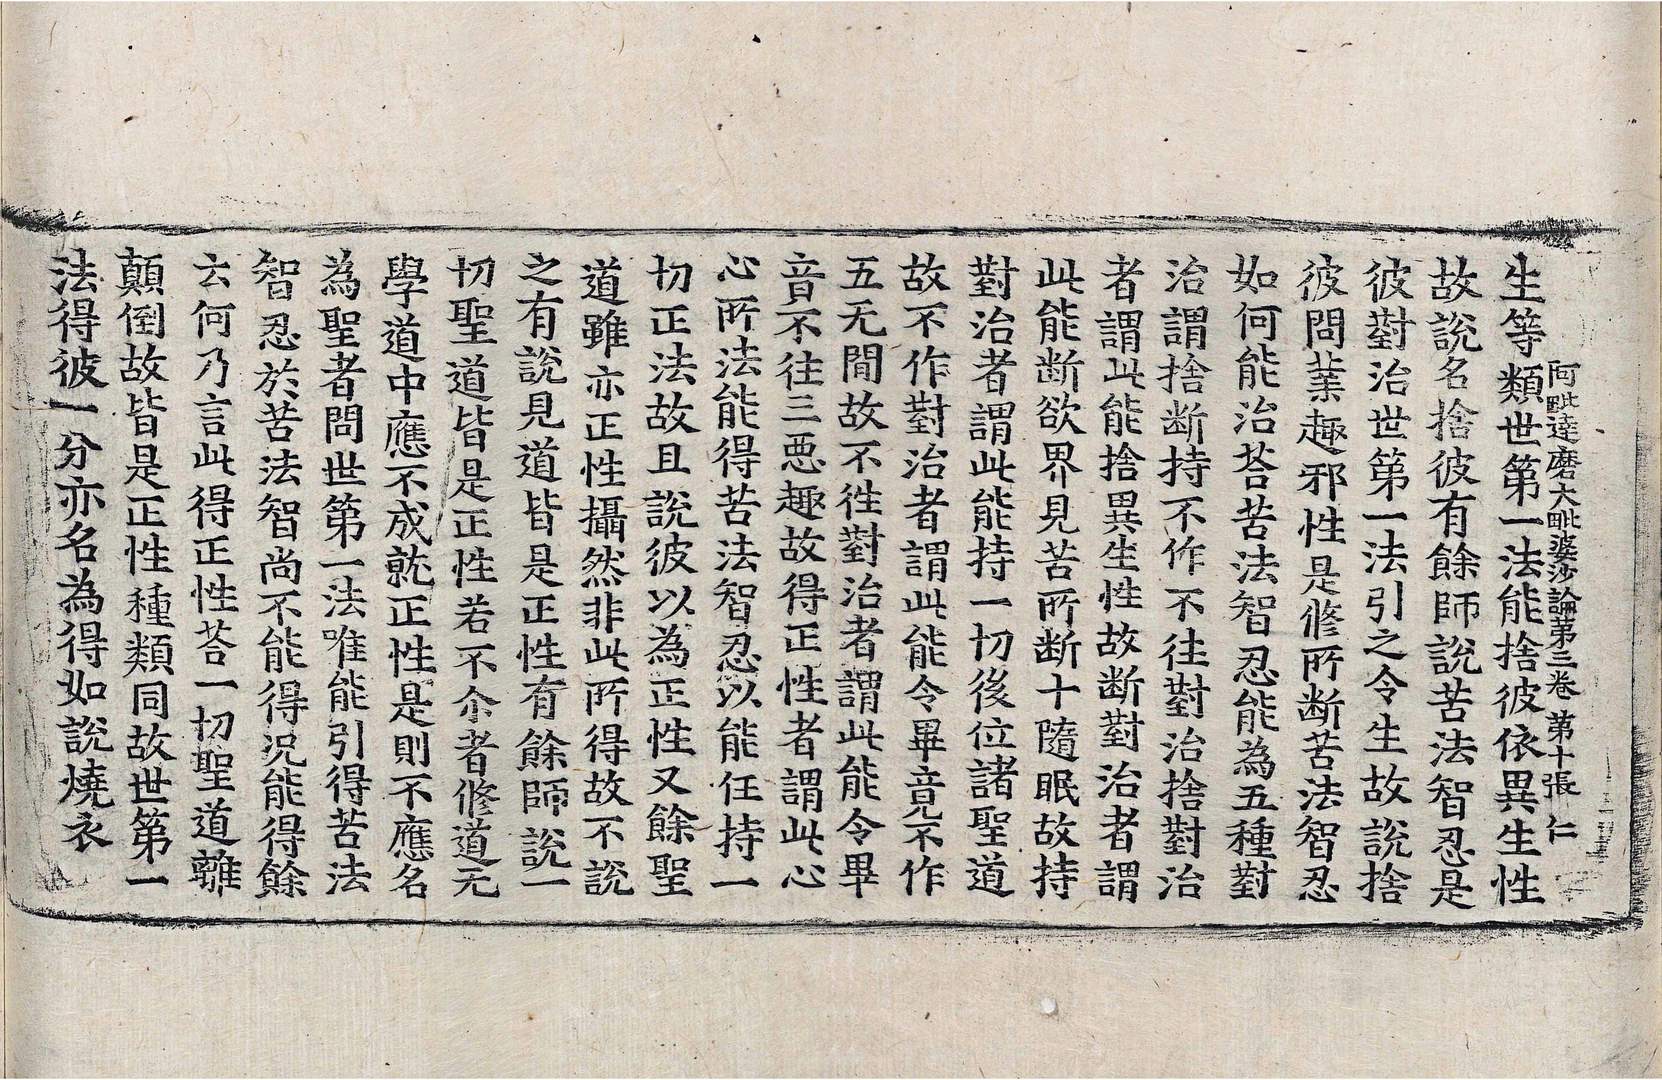 阿毗達磨大毗婆沙論第三卷 第十張 仁
生等類世第一法能捨彼依異生性
故說名捨彼有餘師說苦法智忍是
彼對治世第一法引之令生故說捨
彼問業趣邪性是修所断苦法智忍
如何能治荅苦法智忍能為五種對
治謂捨断持不作不往對治捨對治
者謂此能捨異生性故断對治者謂
此能断欲界見苦所断十隨眠故持
對治者謂此能持一切後位諸聖道
故不作對治者謂此能令畢竟不作
五无間故不往對治者謂此能令畢
竟不往三悪趣故得正性者謂此心
心所法能得苦法智忍以能任持一
切正法故且說彼以為正性又餘聖
道雖亦正性攝然非此所得故不說
之有說見道皆是正性有餘師說一
切聖道皆是正性若不尒者修道无
學道中應不成就正性是則不應名
為聖者問世第一法唯能引得苦法
智忍於苦法智尚不能得況能得餘
云何乃言此得正性荅一切聖道離
顛倒故皆是正性種類同故世第一
法得彼一分亦名為得如說燒衣